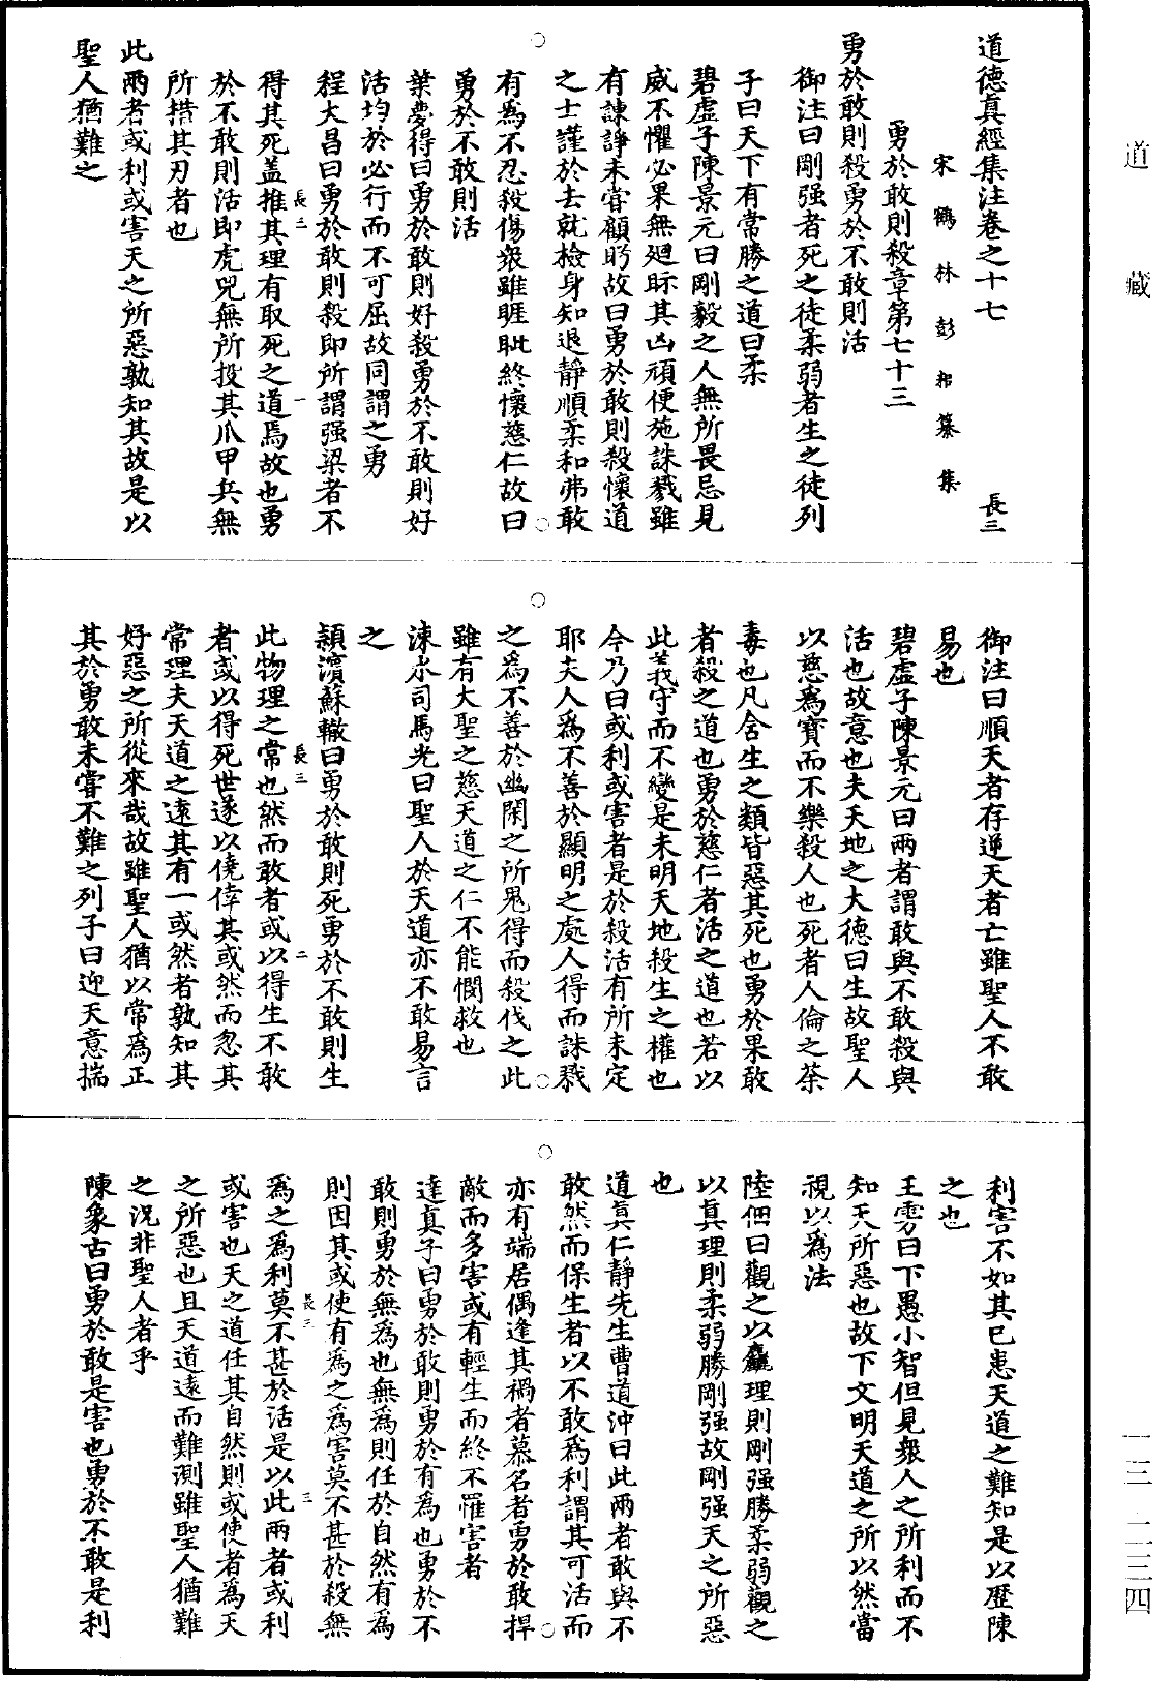 道藏
道德真經集注卷之十七
長三
宋鶴林彭耜纂集
勇於敢則殺章第七十三
勇於敢則殺勇於不敢則活
御注曰剛强者死之徒柔弱者生之徒列
子曰天下有常勝之道曰柔
碧虛子陳景元曰剛毅之人無所畏忌見
威不懼必果無廻眎其凶頑便施誅戮雖
有諫諍未嘗顧盻故曰勇於敢則殺懷道
之士謹於去就檢身知退靜順柔和弗敢
有爲不忍殺傷衆雖睚眦終懷慈仁故曰
勇於不敢則活
葉夢得曰勇於敢則好殺勇於不敢則好
活均於必行而不可屈故同謂之勇
程大昌曰勇於敢則殺即所謂强梁者不
長三
一
得其死盖推其理有取死之道焉故也勇
於不敢則活即虎兕無所投其爪甲兵無
所措其刃者也
此兩者或利或害天之所惡孰知其故是以
聖人猶難之
御注曰順天者存逆天者亡雖聖人不敢
易也
碧虛子陳景元曰兩者謂敢與不敢殺與
活也故意也夫天地之大德曰生故聖人
以慈爲寶而不樂殺人也死者人倫之荼
毒也凡含生之類皆惡其死也勇於果敢
者殺之道也勇於慈仁者活之道也若以
此義守而不變是未明天地殺生之權也
今乃曰或利或害者是於殺活有所未定
耶夫人爲不善於顯明之處人得而誅戮
之爲不善於幽閑之所鬼得而殺伐之此
雖有大聖之慈天道之仁不能憫救也
涑水司馬光曰聖人於天道亦不敢易言
之
潁濱蘇轍曰勇於敢則死勇於不敢則生
長三
二
此物理之常也然而敢者或以得生不敢
者或以得死世遂以僥倖其或然而忽其
常理夫天道之遠其有一或然者孰知其
好惡之所從來哉故雖聖人猶以常爲正
其於勇敢未嘗不難之列子曰迎天意揣
利害不如其已患天道之難知是以歷陳
之也
王雱曰下愚小智但見衆人之所利而不
知天所惡也故下文明天道之所以然當
視以爲法
陸佃曰觀之以麤理則剛强勝柔弱觀之
以真理則柔弱勝剛强故剛强天之所惡
也
道真仁靜先生曹道沖曰此兩者敢與不
敢然而保生者以不敢爲利謂其可活而
亦有端居偶逢其禍者慕名者勇於敢捍
敵而多害或有輕生而終不罹害者
達真子曰勇於敢則勇於有爲也勇於不
敢則勇於無爲也無爲則任於自然有爲
則因其或使有爲之爲害莫不甚於殺無
長三
三
爲之爲利莫不甚於活是以此兩者或利
或害也天之道任其自然則或使者爲天
之所惡也且天道遠而難測雖聖人猶難
之況非聖人者乎
陳象古曰勇於敢是害也勇於不敢是利
一三—二三四